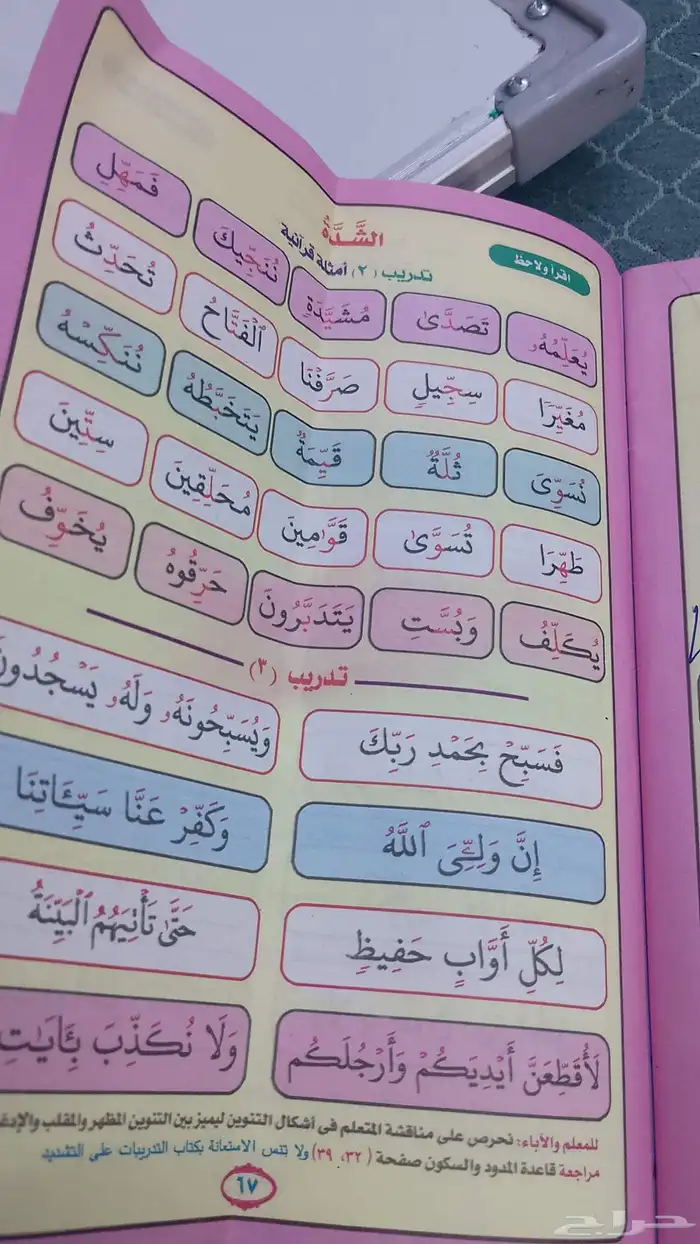 الشَّدَّةُ
اقرأ ولاحظ
تدريب (٢) أمثلة قرآنية
يُعَلِّمُهُۥ تَصَدَّىٰ مُشَيَّدَةٍ نُنَجِّيكَ فَمَهِّلِ
مُغَيِّرًا سِجِّيلٍ صَرَّفْنَا ٱلْفَتَّاحُ تُحَدِّثُ
نُسَوِّىَ ثُلَّةٌ قَيِّمَةٌ يَتَخَبَّطُهُ نُنَكِّسْهُ
طَهِّرَا تُسَوَّىٰ قَوَّٰمِينَ مُحَلِّقِينَ سِتِّينَ
يُكَلِّفُ وَبُسَّتِ يَتَدَبَّرُونَ حَرِّقُوهُ يُخَوِّفُ
تدريب (٣)
فَسَبِّحْ بِحَمْدِ رَبِّكَ وَيُسَبِّحُونَهُۥ وَلَهُۥ يَسْجُدُونَ
إِنَّ وَلِـِّۧىَ ٱللَّهُ وَكَفِّرْ عَنَّا سَيِّـَٔاتِنَا
لِكُلِّ أَوَّابٍ حَفِيظٍ حَتَّىٰ تَأْتِيَهُمُ ٱلْبَيِّنَةُ
لَأُقَطِّعَنَّ أَيْدِيَكُمْ وَأَرْجُلَكُم وَلَا نُكَذِّبَ بِـَٔايَٰتِ
للمعلم والآباء: نحرص على مناقشة المتعلم في أشكال التنوين ليميز بين التنوين المظهر والمقلب
مراجعة قاعدة المدود والسكون صفحة (٣٢، ٣٩) ولا تنس الاستعانة بكتاب التدريبات على التشديد
٦٧
حراج